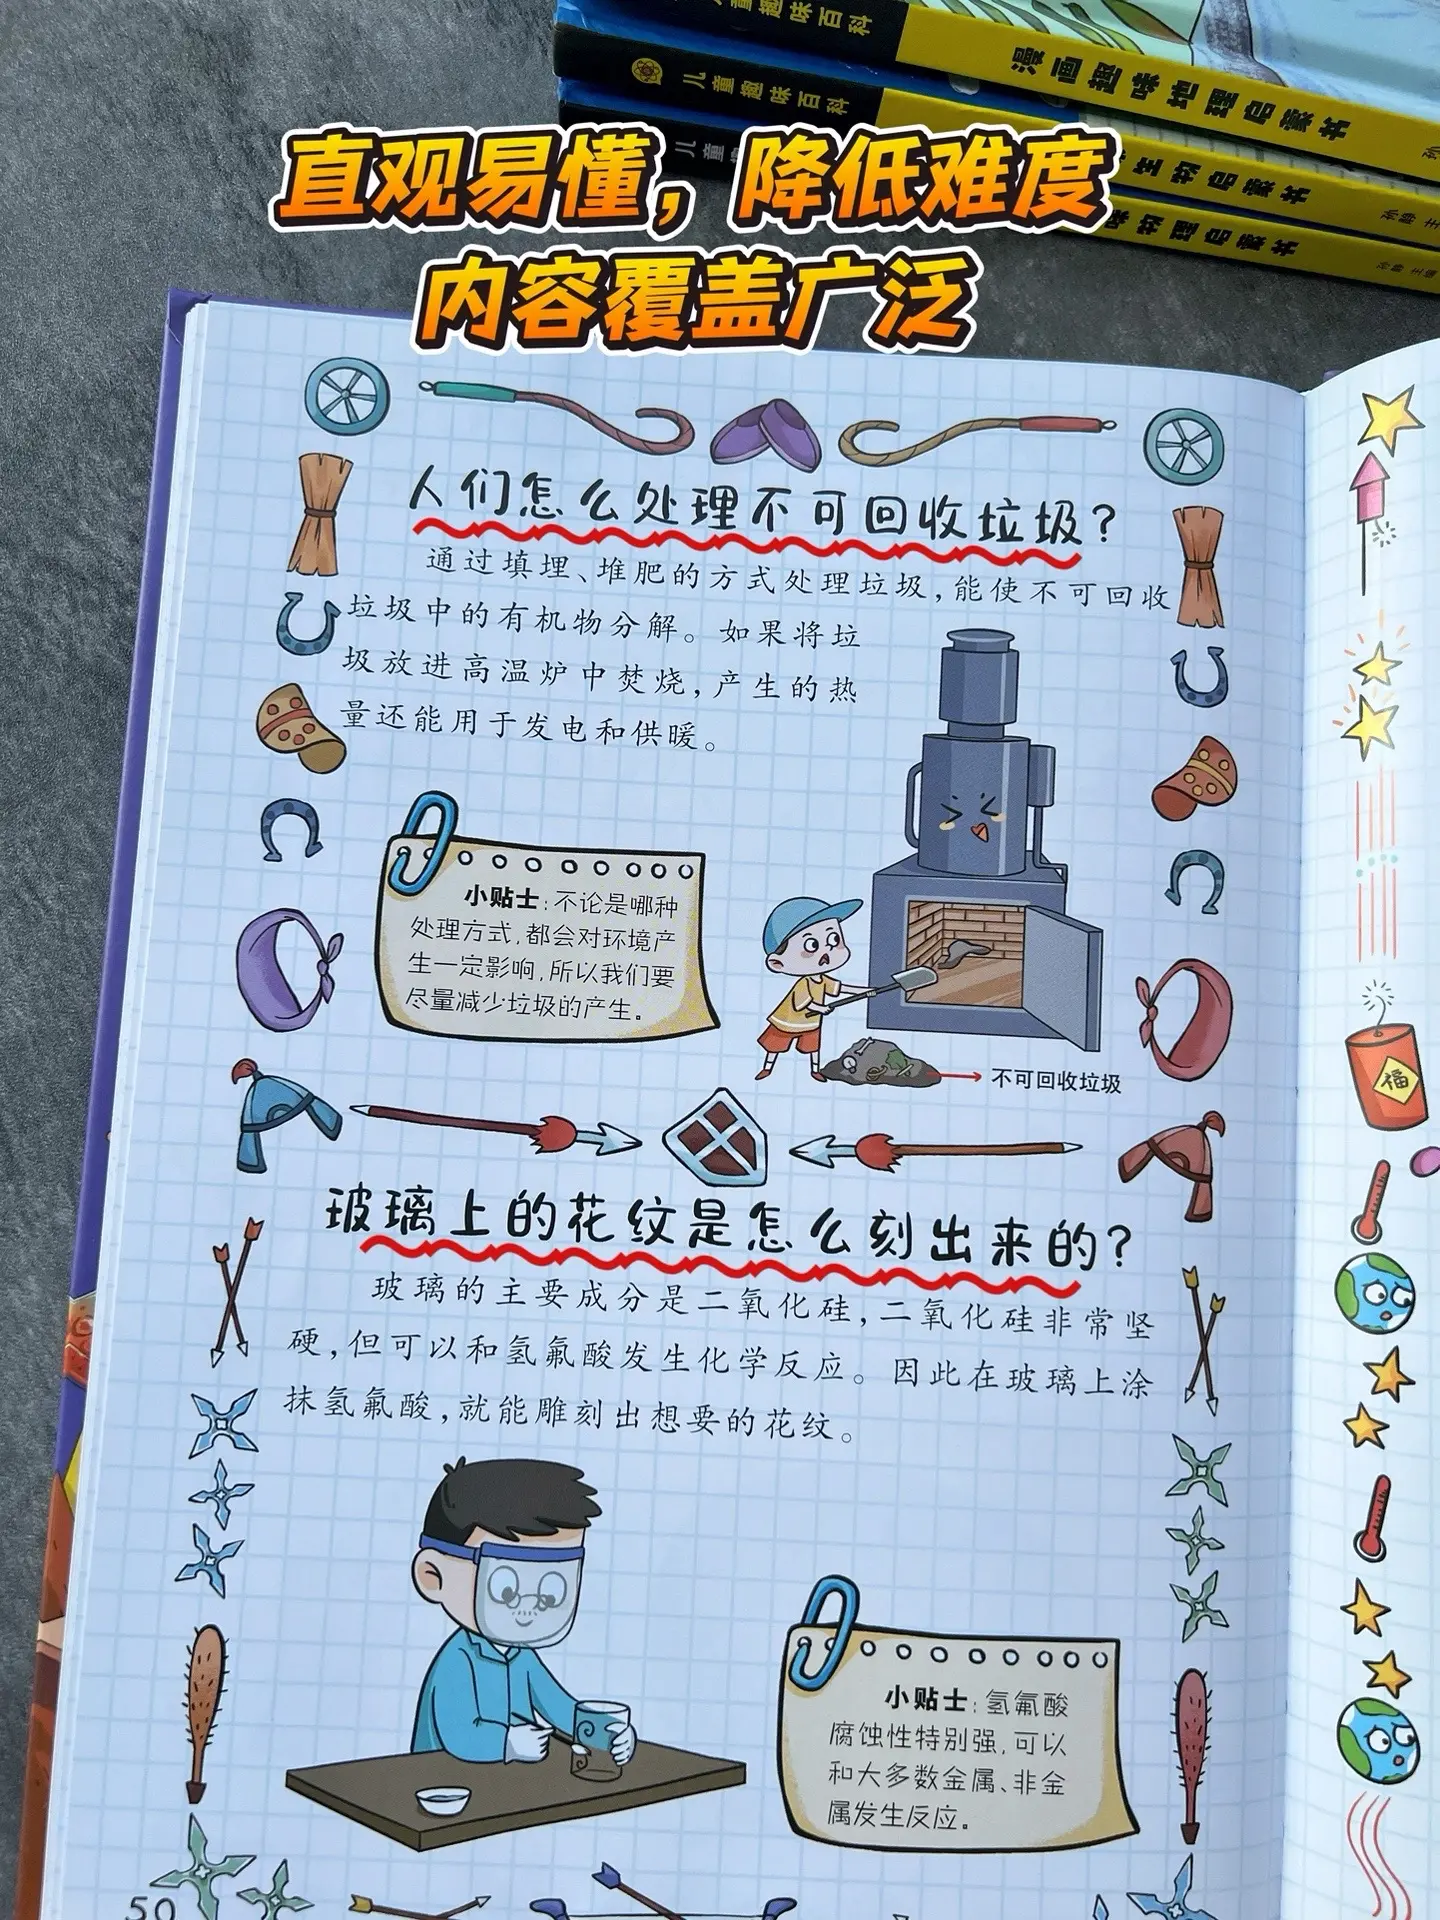 儿童趣味百科
漫画趣味地理启蒙书
儿童趣味百科
生物启蒙书
孙静 主
儿童
物理启蒙书
孙静 主编
直观易懂，降低难度
内容覆盖广泛
人们怎么处理不可回收垃圾？
通过填埋、堆肥的方式处理垃圾，能使不可回收
垃圾中的有机物分解。如果将垃
圾放进高温炉中焚烧，产生的热
量还能用于发电和供暖。
小贴士：不论是哪种
处理方式，都会对环境产
生一定影响，所以我们要
尽量减少垃圾的产生。
不可回收垃圾
福
玻璃上的花纹是怎么刻出来的？
玻璃的主要成分是二氧化硅，二氧化硅非常坚
硬，但可以和氢氟酸发生化学反应。因此在玻璃上涂
抹氢氟酸，就能雕刻出想要的花纹。
小贴士：氢氟酸
腐蚀性特别强，可以
和大多数金属、非金
属发生反应。
50